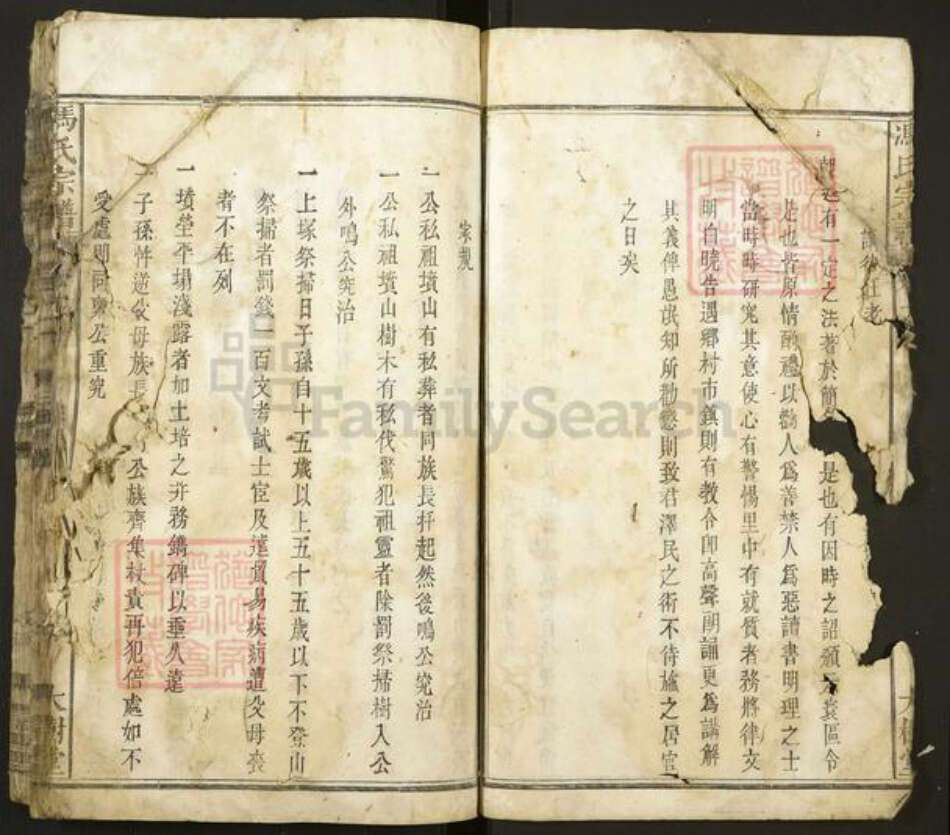 馮氏宗譜
讀律註考
朝廷有一定之法著於簡 是也有因時之詔頒 寰區令
是也皆原情酌禮以勸人爲善禁人爲惡讀書明理之士
當時時研究其意使心有警惕里中有就質者務將律文
明白曉告遇鄉村市鎮則有敎令卽高聲朗誦更爲講解
其義俾愚氓知所勸懲則致君澤民之術不待施之居官
之日矣
大樹堂
宗規
一公私祖墳山有私葬者同族長拜起然後鳴公究治
一公私祖墳山樹木有私伐驚犯祖靈者除罰祭掃樹入公
外鳴公究治
一上塚祭掃日子孫自十五歲以上五十五歲以下不登山
祭掃者罰錢一百文考試士宦及遠貿易疾病遭父母喪
者不在列
一墳塋平塌淺露者加土培之并務鐫碑以垂久遠
一子孫忤逆父母族長 公族齊集杖責再犯倍處如不
受處卽同稟公重究
馮氏宗譜
大樹堂
FamilySearch